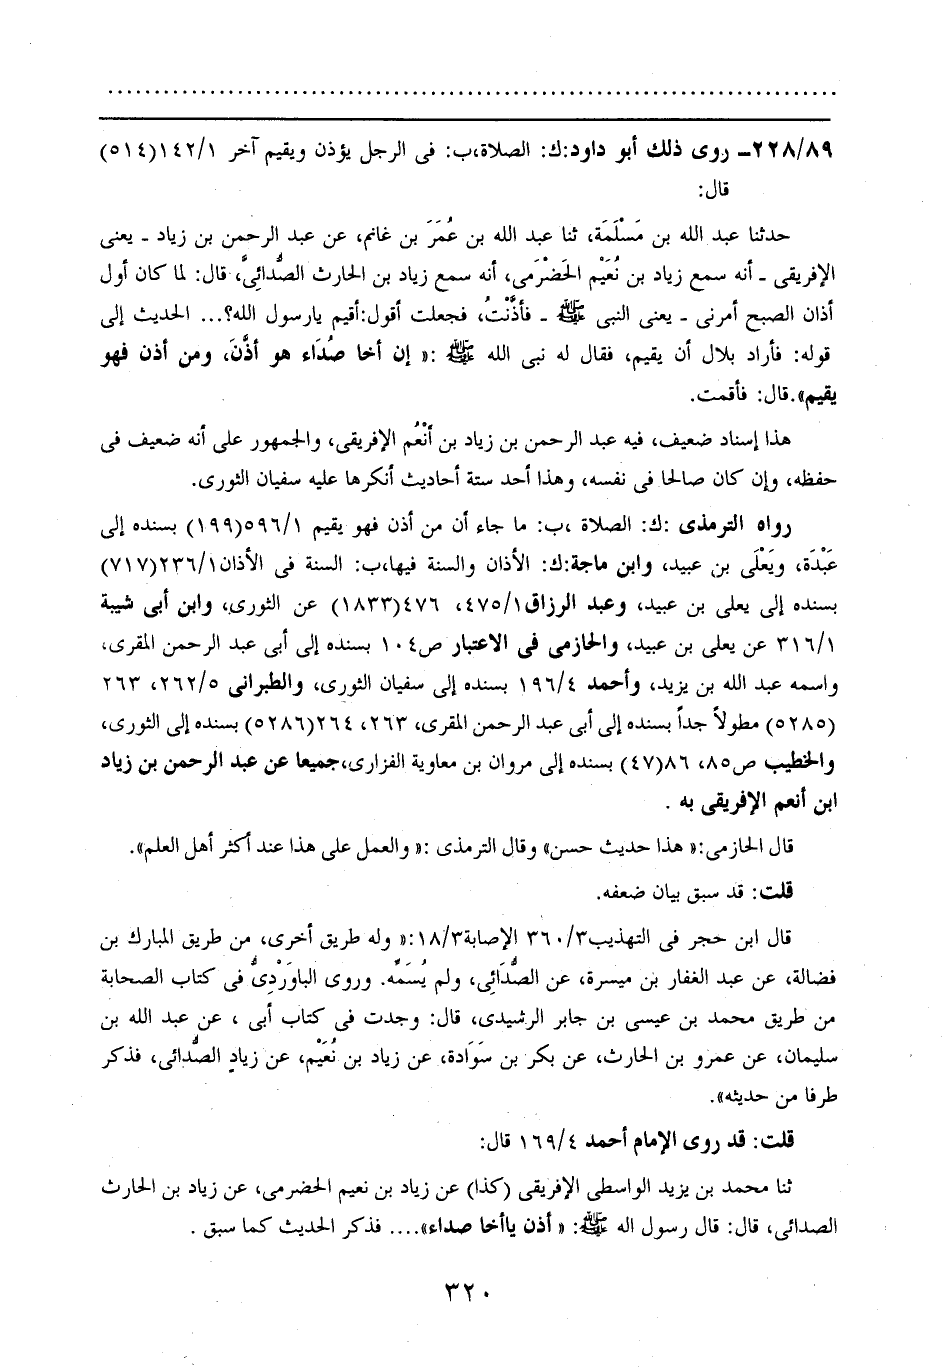 ٢٢٨/٨٩ـ روى ذلك أبو داود:ك: الصلاة،ب: فى الرجل يؤذن ويقيم آخر ١٤٢/١(٥١٤)
قال:
حدثنا عبد الله بن مَسْلَمَة، ثنا عبد الله بن عُمَرَ بن غانم، عن عبد الرحمن بن زياد ـ يعنى
الإفريقى ـ أنه سمع زياد بن نُعَيْم الحَضْرَمى، أنه سمع زياد بن الحارث الصُّدائىَّ، قال: لما كان أول
أذان الصبح أمرنى ـ يعنى النبى ﷺ ـ فأذَّنْتُ، فجعلت أقول:أقيم يارسول الله؟... الحديث إلى
قوله: فأراد بلال أن يقيم، فقال له نبى الله ﷺ :« إن أخا صُدَاء هو أذَّنَ، ومن أذن فهو
يقيم».قال: فأقمت.
هذا إسناد ضعيف، فيه عبد الرحمن بن زياد بن أَنْعُم الإفريقى، والجمهور على أنه ضعيف فى
حفظه، وإن كان صالحا فى نفسه، وهذا أحد ستة أحاديث أنكرها عليه سفيان الثورى.
رواه الترمذى :ك: الصلاة ،ب: ما جاء أن من أذن فهو يقيم ٥٩٦/١(١٩٩) بسنده إلى
عَبْدَة، ويَعْلَى بن عبيد، وابن ماجة:ك: الأذان والسنة فيها،ب: السنة فى الأذان٢٣٦/١(٧١٧)
بسنده إلى يعلى بن عبيد، وعبد الرزاق٤٧٥/١، ٤٧٦(١٨٣٣) عن الثورى، وابن أبى شيبة
٣١٦/١ عن يعلى بن عبيد، والحازمى فى الاعتبار ص١٠٤ بسنده إلى أبى عبد الرحمن المقرى،
واسمه عبد الله بن يزيد، وأحمد ١٩٦/٤ بسنده إلى سفيان الثورى، والطبرانى ٢٦٢/٥، ٢٦٣
(٥٢٨٥) مطولاً جداً بسنده إلى أبى عبد الرحمن المقرى، ٢٦٣، ٢٦٤(٥٢٨٦) بسنده إلى الثورى،
والخطيب ص٨٥، ٨٦(٤٧) بسنده إلى مروان بن معاوية الفزارى،جميعا عن عبد الرحمن بن زياد
ابن أنعم الإفريقى به .
قال الحازمى:« هذا حديث حسن» وقال الترمذى :« والعمل على هذا عند أكثر أهل العلم».
قلت: قد سبق بيان ضعفه.
قال ابن حجر فى التهذيب٣٦٠/٣ الإصابة١٨/٣:« وله طريق أخرى، من طريق المبارك بن
فضالة، عن عبد الغفار بن ميسرة، عن الصُّدَائِى، ولم يُسَمِّه. وروى الباوَرْدِىُّ فى كتاب الصحابة
من طريق محمد بن عيسى بن جابر الرشيدى، قال: وجدت فى كتاب أبى ، عن عبد الله بن
سليمان، عن عمرو بن الحارث، عن بكر بن سَوَادة، عن زياد بن نُعَيْم، عن زيادٍ الصُّدائى، فذكر
طرفا من حديثه».
قلت: قد روى الإمام أحمد ١٦٩/٤ قال:
ثنا محمد بن يزيد الواسطى الإفريقى (كذا) عن زياد بن نعيم الحضرمى، عن زياد بن الحارث
الصدائى، قال: قال رسول اله ﷺ: « أذن ياأخا صداء».... فذكر الحديث كما سبق .
٣٢٠